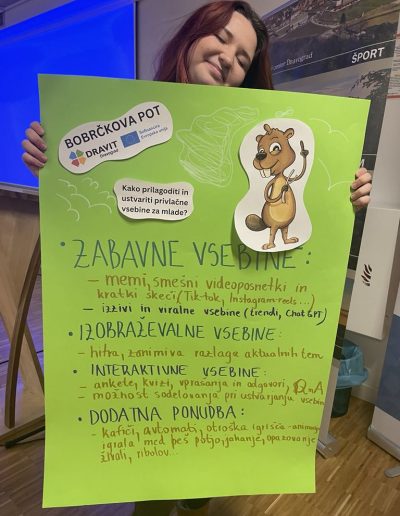 ŠPORT
BOBRČKOVA POT
DRAVIT
Dravograd
Sofinancira
Evropska unija
Kako prilagoditi in
ustvariti privlačne
vsebine za mlade?
• ZABAVNE VSEBINE:
– memi, smešni videoposnetki in
kratki skeči (Tik-tok, Instagram-reels...)
– izzivi in viralne vsebine (trendi, Chat GPT)
• IZOBRAŽEVALNE VSEBINE:
– hitra, zanimiva razlaga aktualnih tem
• INTERAKTIVNE VSEBINE:
– ankete, kvizi, vprašanja in odgovori, QnA
– možnost sodelovanja pri ustvarjanju vsebin
• DODATNA PONUDBA:
– kafiči, avtomati, otroška igrišča - animacija
igrala med peš potjo, jahanje, opazovanje
živali, ribolov...